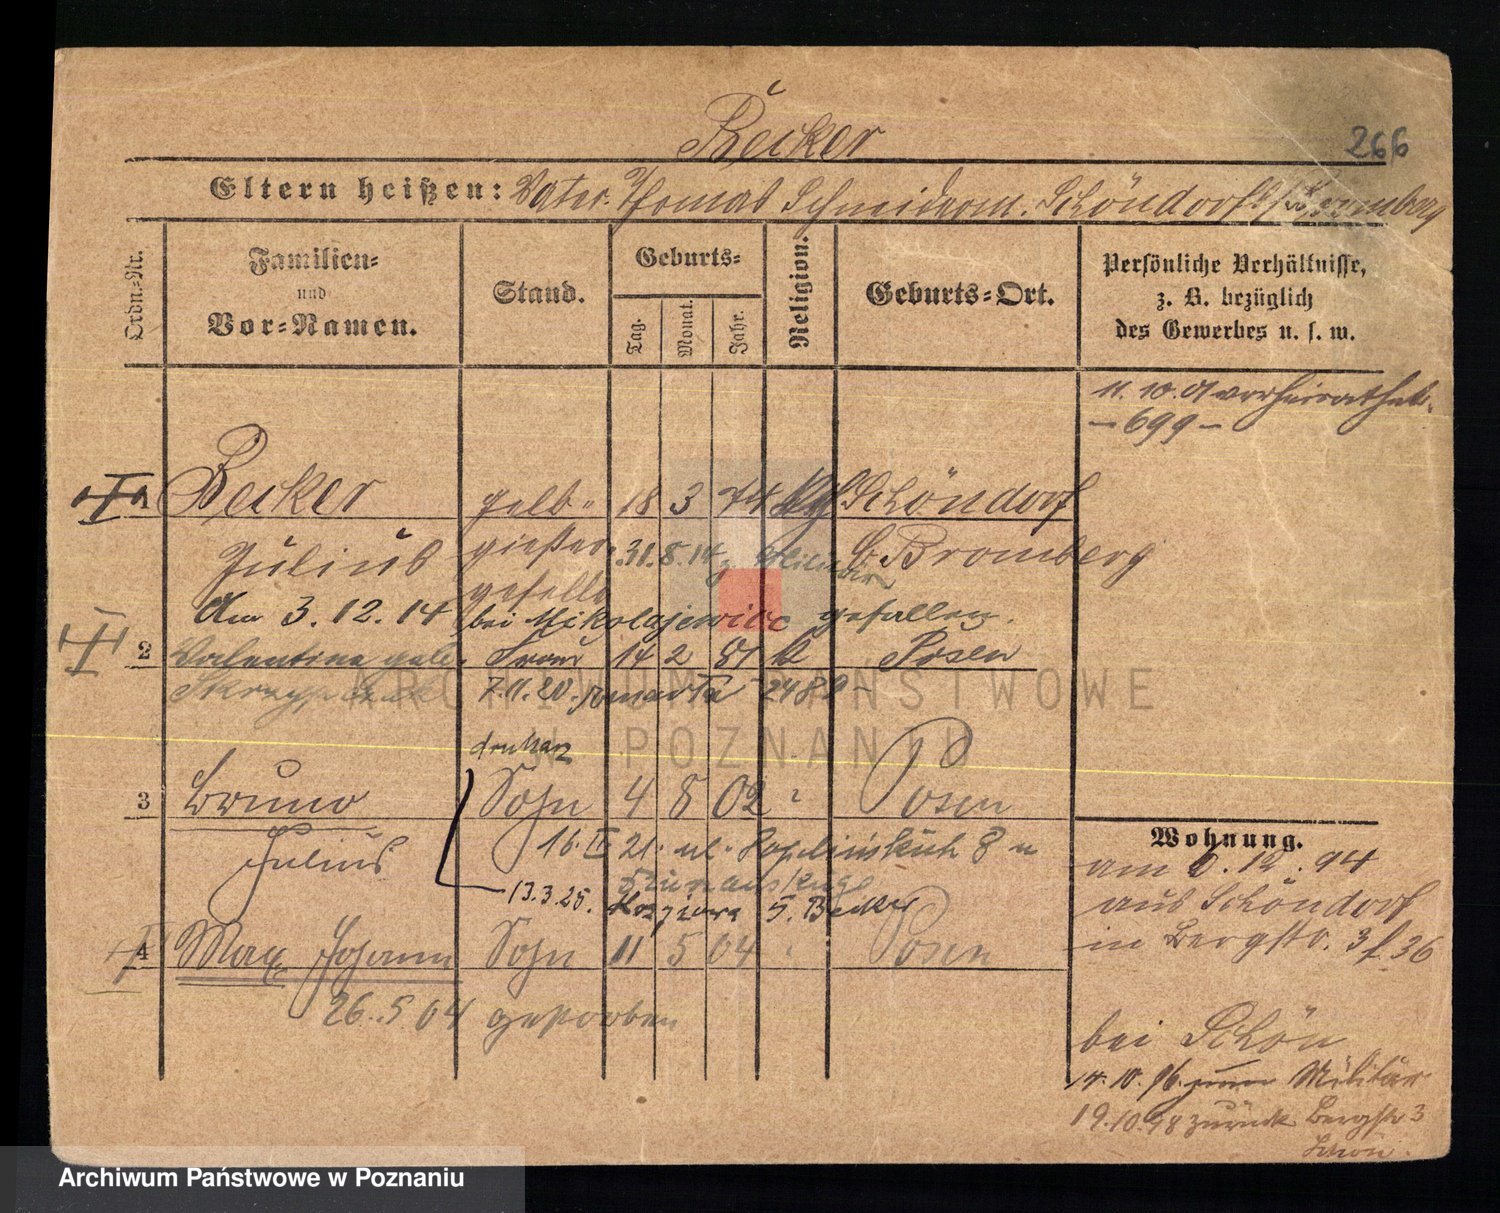 Becker
266
Eltern heißen: Vater. Thomas Schneiderm. Schöndorf b/ Bromberg
Ordn.-Nr.
Familien-
und
Vor-Namen.
Stand.
Geburts-
Tag.
Monat.
Jahr.
Religion.
Geburts-Ort.
Persönliche Verhältnisse,
z. B. bezüglich
des Gewerbes u. s. w.
11. 10. 01 verheirathet.
– 699 –
1 Becker Gelb- 18 3 74 Schöndorf
Julius gießer 31. 8. 14 z. Militär b. Bromberg
geselle
Am 3. 12. 14 bei Mikolajewice gefallen.
2 Valentina geb. Frau 14 2 81 k Posen
7. 11. 20. zmarła 2482 –
drukarz
3 Bruno Sohn 4 8 02 " Posen
Julius
16. IX 21. ul. 8
13.3.25. S. Becker
4 Max Johann Sohn 11 5 04 " Posen
26. 5 04 gestorben
Wohnung.
am 6. 12. 94
aus Schöndorf
in Bergstr. 3 f. 36
bei Schön
14. 10. 96. zum Militär
19. 10. 98 zurück Bergstr 3
Schön.
ARCHIWUM PAŃSTWOWE
W POZNANIU
Archiwum Państwowe w Poznaniu